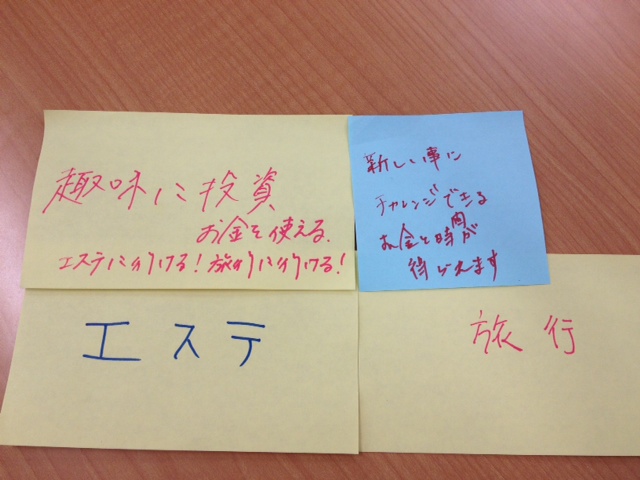 趣味に投資
お金を使える
エステに行ける！旅行に行ける！
新しい事に
チャレンジできる
お金と時間が
待らえます
エステ
旅行